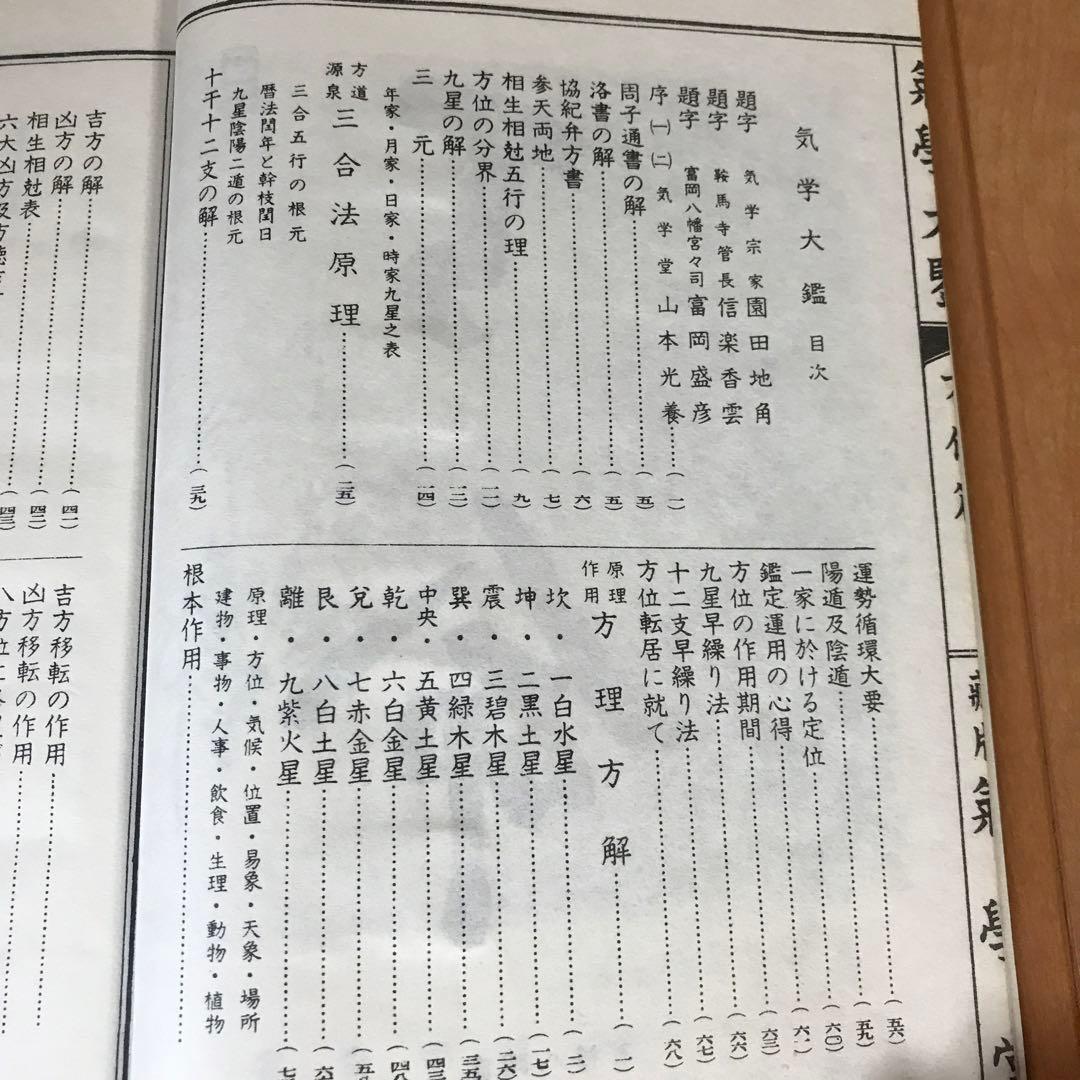 気学大鑑 目次
題字 気学宗家 園田地角
題字 鞍馬寺管長 信楽香雲
題字 富岡八幡宮々司 富岡盛彦
序㈠㈡ 気学堂 山本光養……(一)
周子通書の解……(五)
洛書の解……(五)
協紀弁方書……(六)
参天両地……(七)
相生相尅五行の理……(九)
方位の分界……(一一)
九星の解……(一二)
三元……(一四)
年家・月家・日家・時家九星之表
方道源泉 三合法原理……(二五)
三合五行の根元
暦法閏年と幹枝閏日
九星陰陽二遁の根元
十干十二支の解……(三九)
運勢循環大要……(五六)
陽遁及陰遁……(五九)
一家に於ける定位……(六〇)
鑑定運用の心得……(六一)
方位の作用期間……(六三)
九星早繰り法……(六六)
十二支早繰り法……(六七)
方位転居に就て……(六八)
原理作用 方理方解……(一)
坎・一白水星……(二)
坤・二黒土星……(一七)
震・三碧木星……(二六)
巽・四緑木星……(三五)
中央・五黄土星……(四三)
乾・六白金星……(四八)
兌・七赤金星……
艮・八白土星……
離・九紫火星……
原理・方位・気候・位置・易象・天象・場所
建物・事物・人事・飲食・生理・動物・植物
根本作用……
吉方の解……(四一)
凶方の解……(四二)
相生相尅表……(四二)
六大凶方及方徳
吉方移転の作用
凶方移転の作用
八方位に
氣學大鑑
蔵版氣學堂